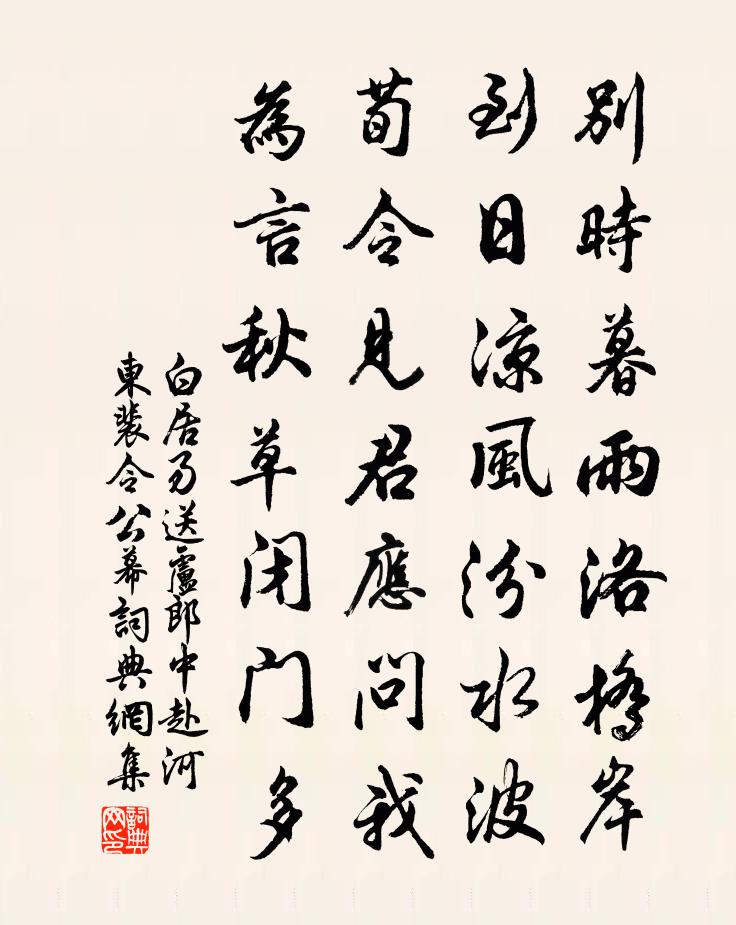 別時暮雨洛橋岸
到日涼風汾水波
荀令見君應問我
為言秋草閉門多
白居易送盧郎中赴河
東裴令公幕詞典網集
詞典
网印